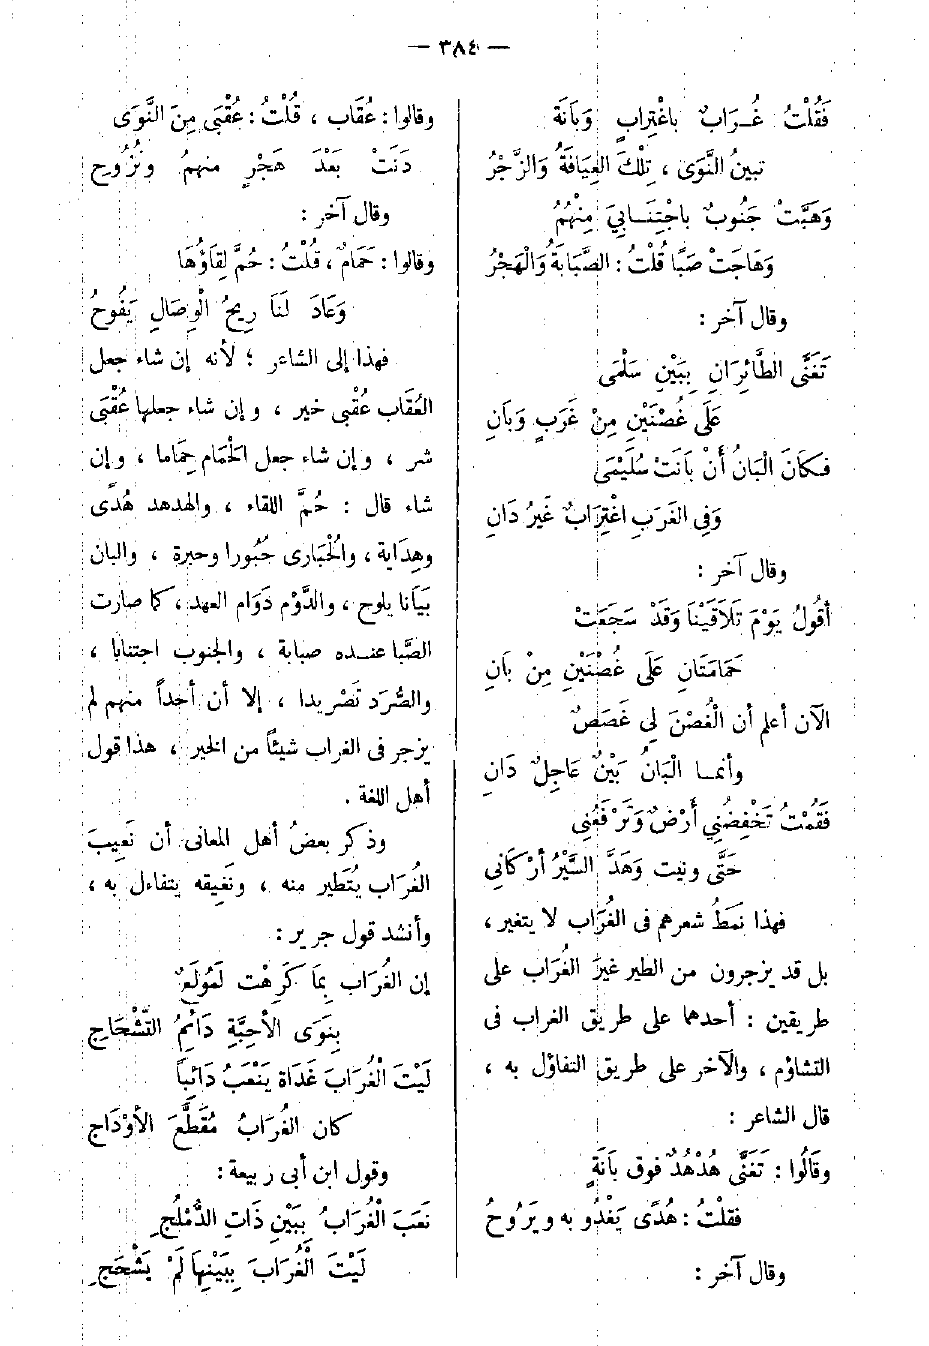 — ٣٨٤ —
فَقُلْتُ غُرَابٌ بِاغْتِرَابٍ وَبَانَة
تبينُ النَّوَى ، تِلْكَ العِيَافَةُ وَالزَّجْرُ
وَهَبَّتْ جَنُوبٌ بِاجْتِنَابِيَ مِنْهُمُ
وَهَاجَتْ صَبًا قُلْتُ : الصَّبَابَةُ وَالْهَجْرُ
وقال آخر :
تَغَنَّى الطَّائِرَانِ بِبَيْنِ سَلْمَى
عَلَى غُصْنَيْنِ مِنْ غَرَبٍ وَبَانِ
فكَانَ الْبَانُ أَنْ بَانَتْ سُلَيْمَى
وَفِى الغَرَبِ اغْتِرَابٌ غَيرُ دَانِ
وقال آخر :
أقُولُ يَوْمَ تَلَاقَيْنَا وَقَدْ سَجَعَتْ
حَمَامَتَانِ عَلَى غُصْنَيْنِ مِنْ بَانِ
الآن أعلم أن الْغُصْنَ لِى غَصَصٌ
وأنما الْبَانُ بَيْنٌ عَاجِلٌ دَانِ
فَقُمْتُ تَخْفِضُنِي أَرْضٌ وَتَرْفَعُنِى
حَتَّى ونيت وَهَدَّ السَّيْرُ أرْكَانِى
فهذا نَمَطُ شعرهم فى الغُرَاب لا يتغير ،
بل قد يزجرون من الطير غيرَ الغُرَاب على
طريقين : أحدهما على طريق الغراب فى
التشاؤم ، والآخر على طريق التفاؤل به ،
قال الشاعر :
وقَالُوا : تَغَنَّى هُدْهُدٌ فوق بَانَةٍ
فقلْتُ : هُدًى يَغْدُو به ويَرُوحُ
وقال آخر :
وقالوا : عُقَاب ، قُلْتُ : عُقْبَى مِنَ النَّوَى
دَنَتْ بَعْدَ هَجْرٍ منهمُ ونُزُوح
وقال آخر :
وقالوا : حَمَامٌ ، قُلْتُ : حُمَّ لِقَاؤُهَا
وَعَادَ لَنَا رِيحُ الْوِصَالِ يَفُوحُ
فهذا إلى الشاعر ؛ لأنه إن شاء جعل
العُقَاب عُقْبى خير ، وإن شاء جعلها عُقْبَى
شر ، وإن شاء جعل الحَمَام حِمَاما ، وإن
شاء قال : حُمَّ اللقاء ، والهدهد هُدًى
وهِدَاية ، والحُبَارى حُبُورا وحبرة ، والبان
بَيَانا يلوح ، والدَّوْم دَوَام العهد ، كما صارت
الصَّبا عنده صبابة ، والجنوب اجتنابا ،
والصُّرَد تَصْريدا ، إلا أن أحداً منهم لم
يزجر فى الغراب شيئاً من الخير ، هذا قول
أهل اللغة .
وذكر بعضُ أهل المعانى أن نَعِيبَ
الغُرَاب يُتَطير منه ، ونَغِيقه يتفاءل به ،
وأنشد قول جرير :
إن الغُرَاب بِمَا كَرِهْت لَمُولَعٌ
بِنَوَى الأحِبَّةِ دَائِمُ التَّشْحَاجِ
لَيْتَ الْغُرَابَ غَدَاةَ يَنْعَبُ دَائِباً
كان الغُرَابُ مُقَطَّعَ الأوْدَاج
وقول ابن أبى ربيعة :
نَعَبَ الْغُرَابُ بِبَيْنِ ذَاتِ الدُّمْلُجِ
لَيْتَ الْغُرَابَ بِبَيْنِهَا لَمْ يَشْحَجِ